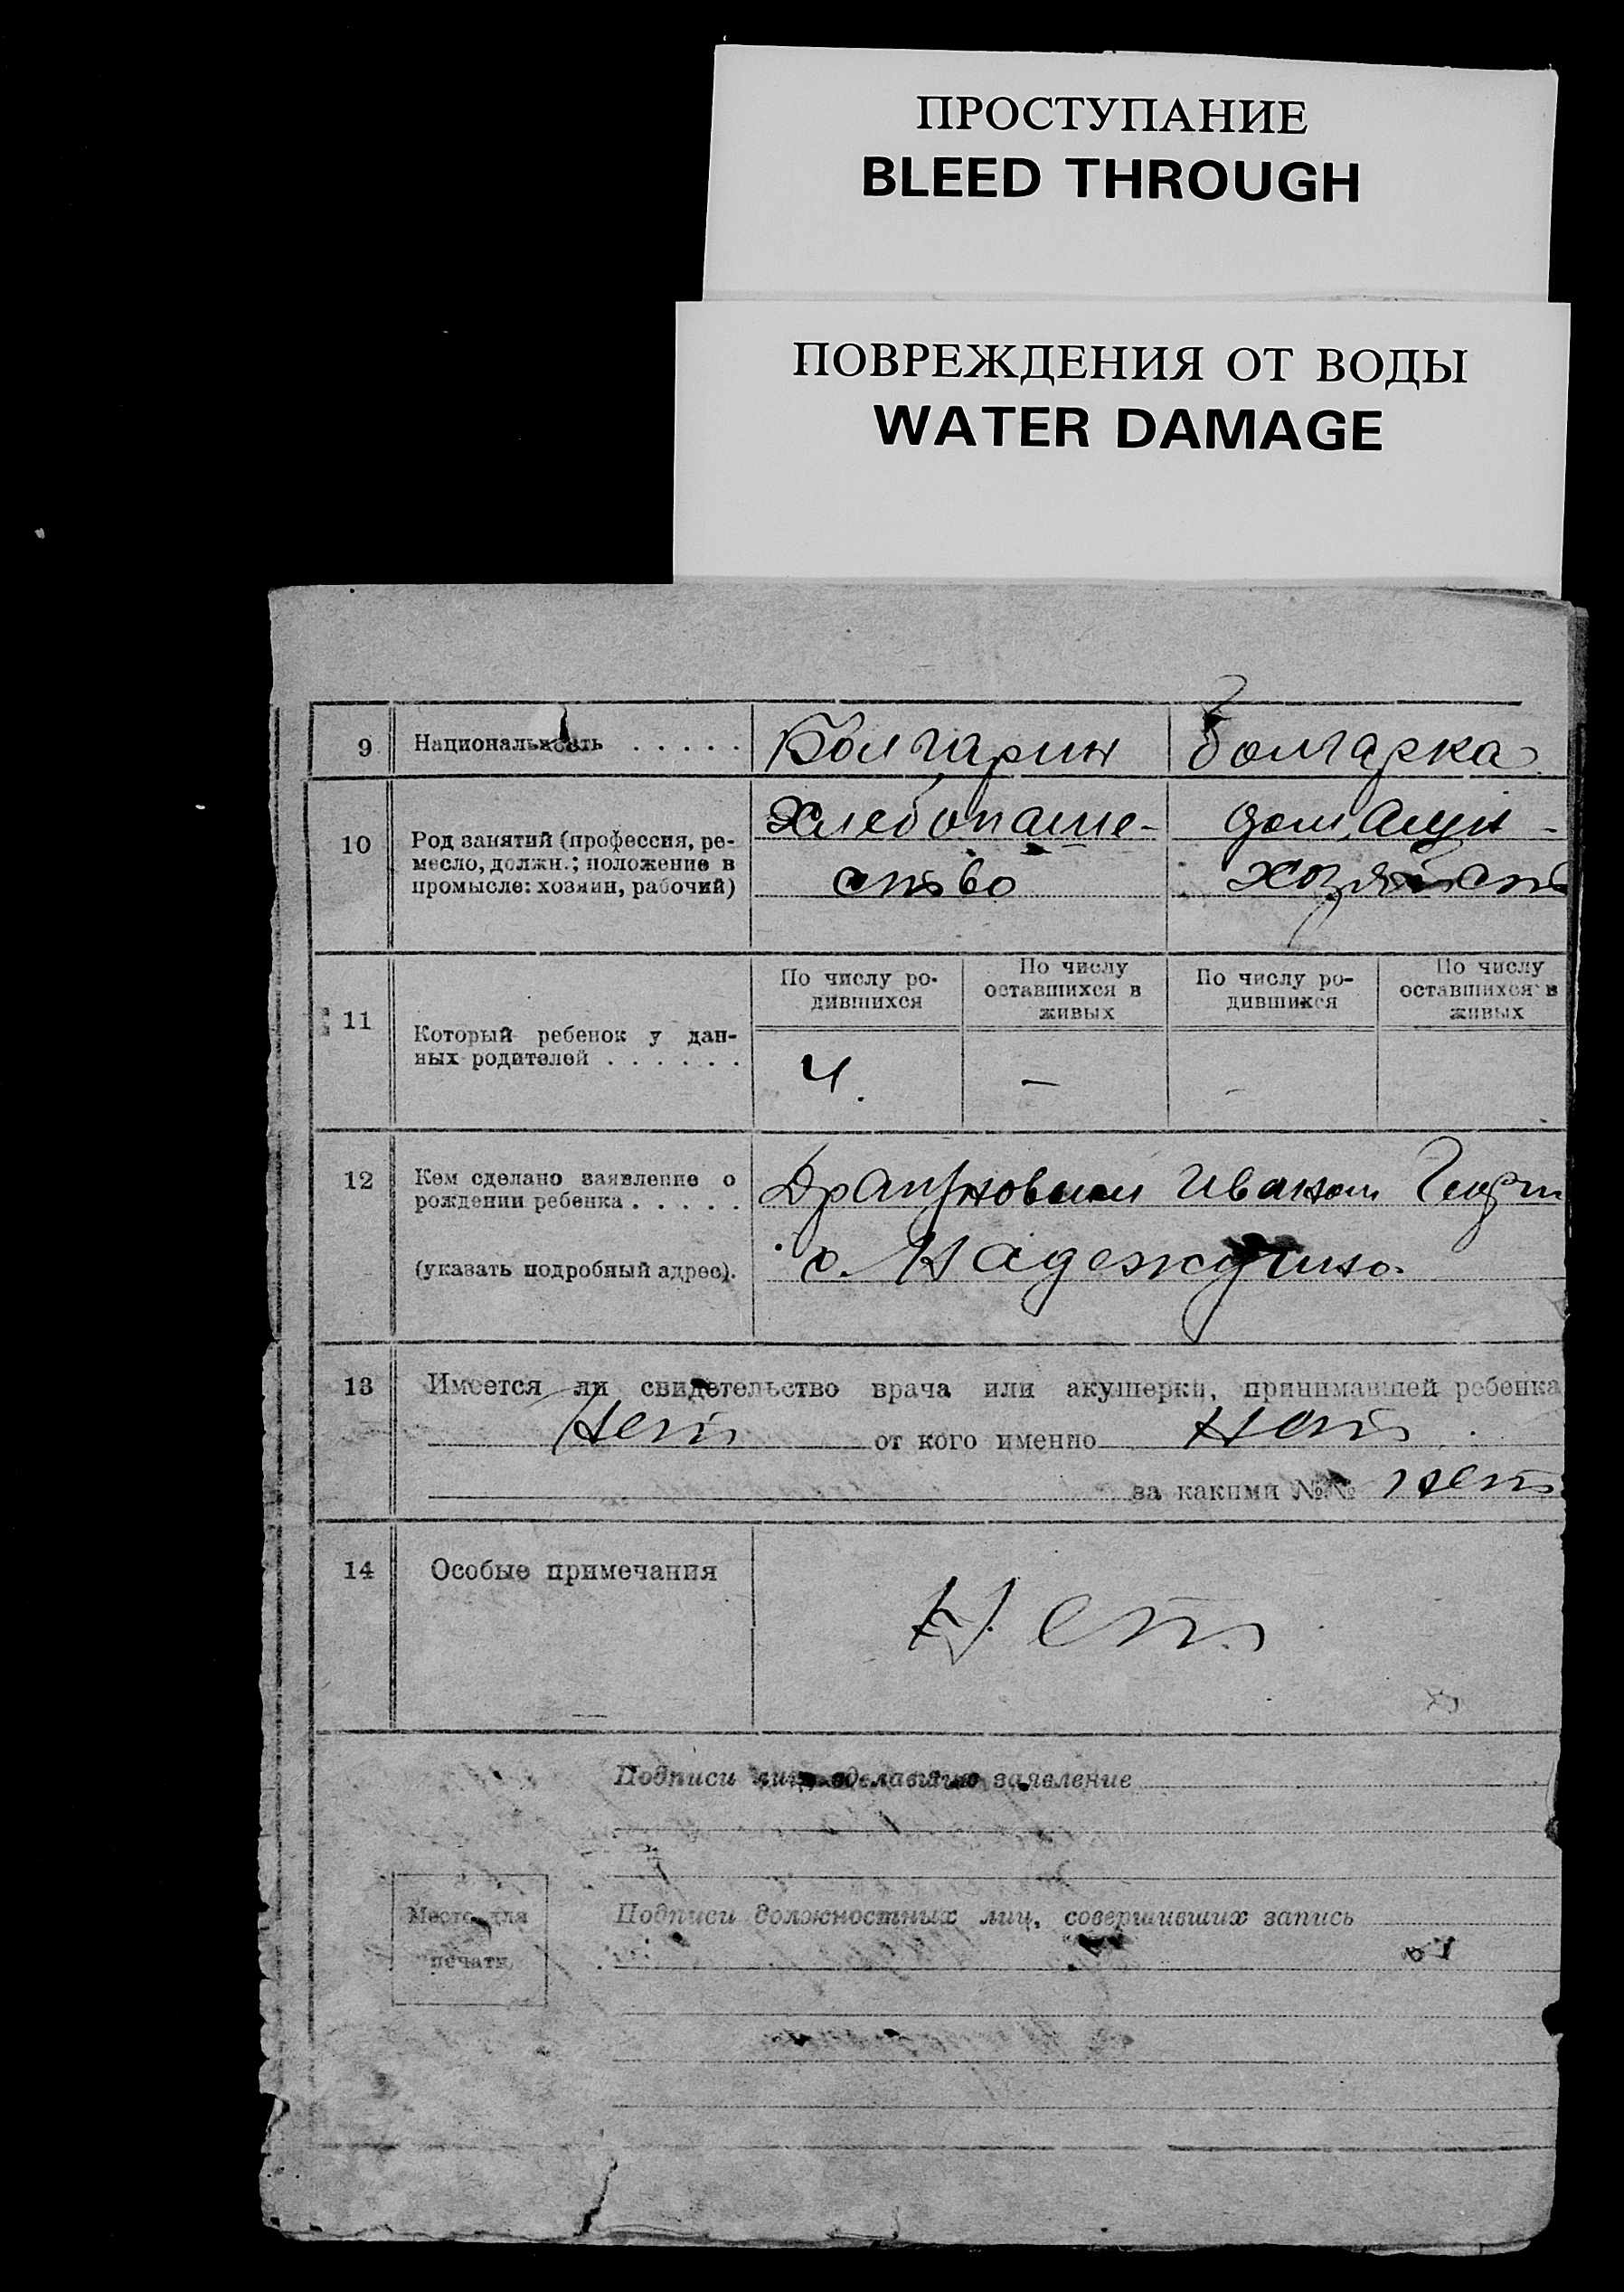 ПРОСТУПАНИЕ
BLEED THROUGH
ПОВРЕЖДЕНИЯ ОТ ВОДЫ
WATER DAMAGE
9 Национальность . . . . . Болгарин болгарка
10 Род занятий (профессия, ре-
месло, должн.; положение в
промысле: хозяин, рабочий)
Хлебопаше-
ство
домашн -
хозяйств
11 Который ребенок у дан-
ных родителей . . . . . .
По числу ро-
дившихся
По числу
оставшихся в
живых
По числу ро-
дившихся
По числу
оставшихся в
живых
4. — -
12 Кем сделано заявление о
рождении ребенка . . . . .
Иваном Георги
(указать подробный адрес).
с. Надеждино.
13 Имеется ли свидетельство врача или акушерки, принимавшей ребенка
Нет от кого именно Нет
за какими №№ нет
14 Особые примечания
Нет
Подписи лиц, сделавших заявление
Место для
печати
Подписи должностных лиц, совершивших запись